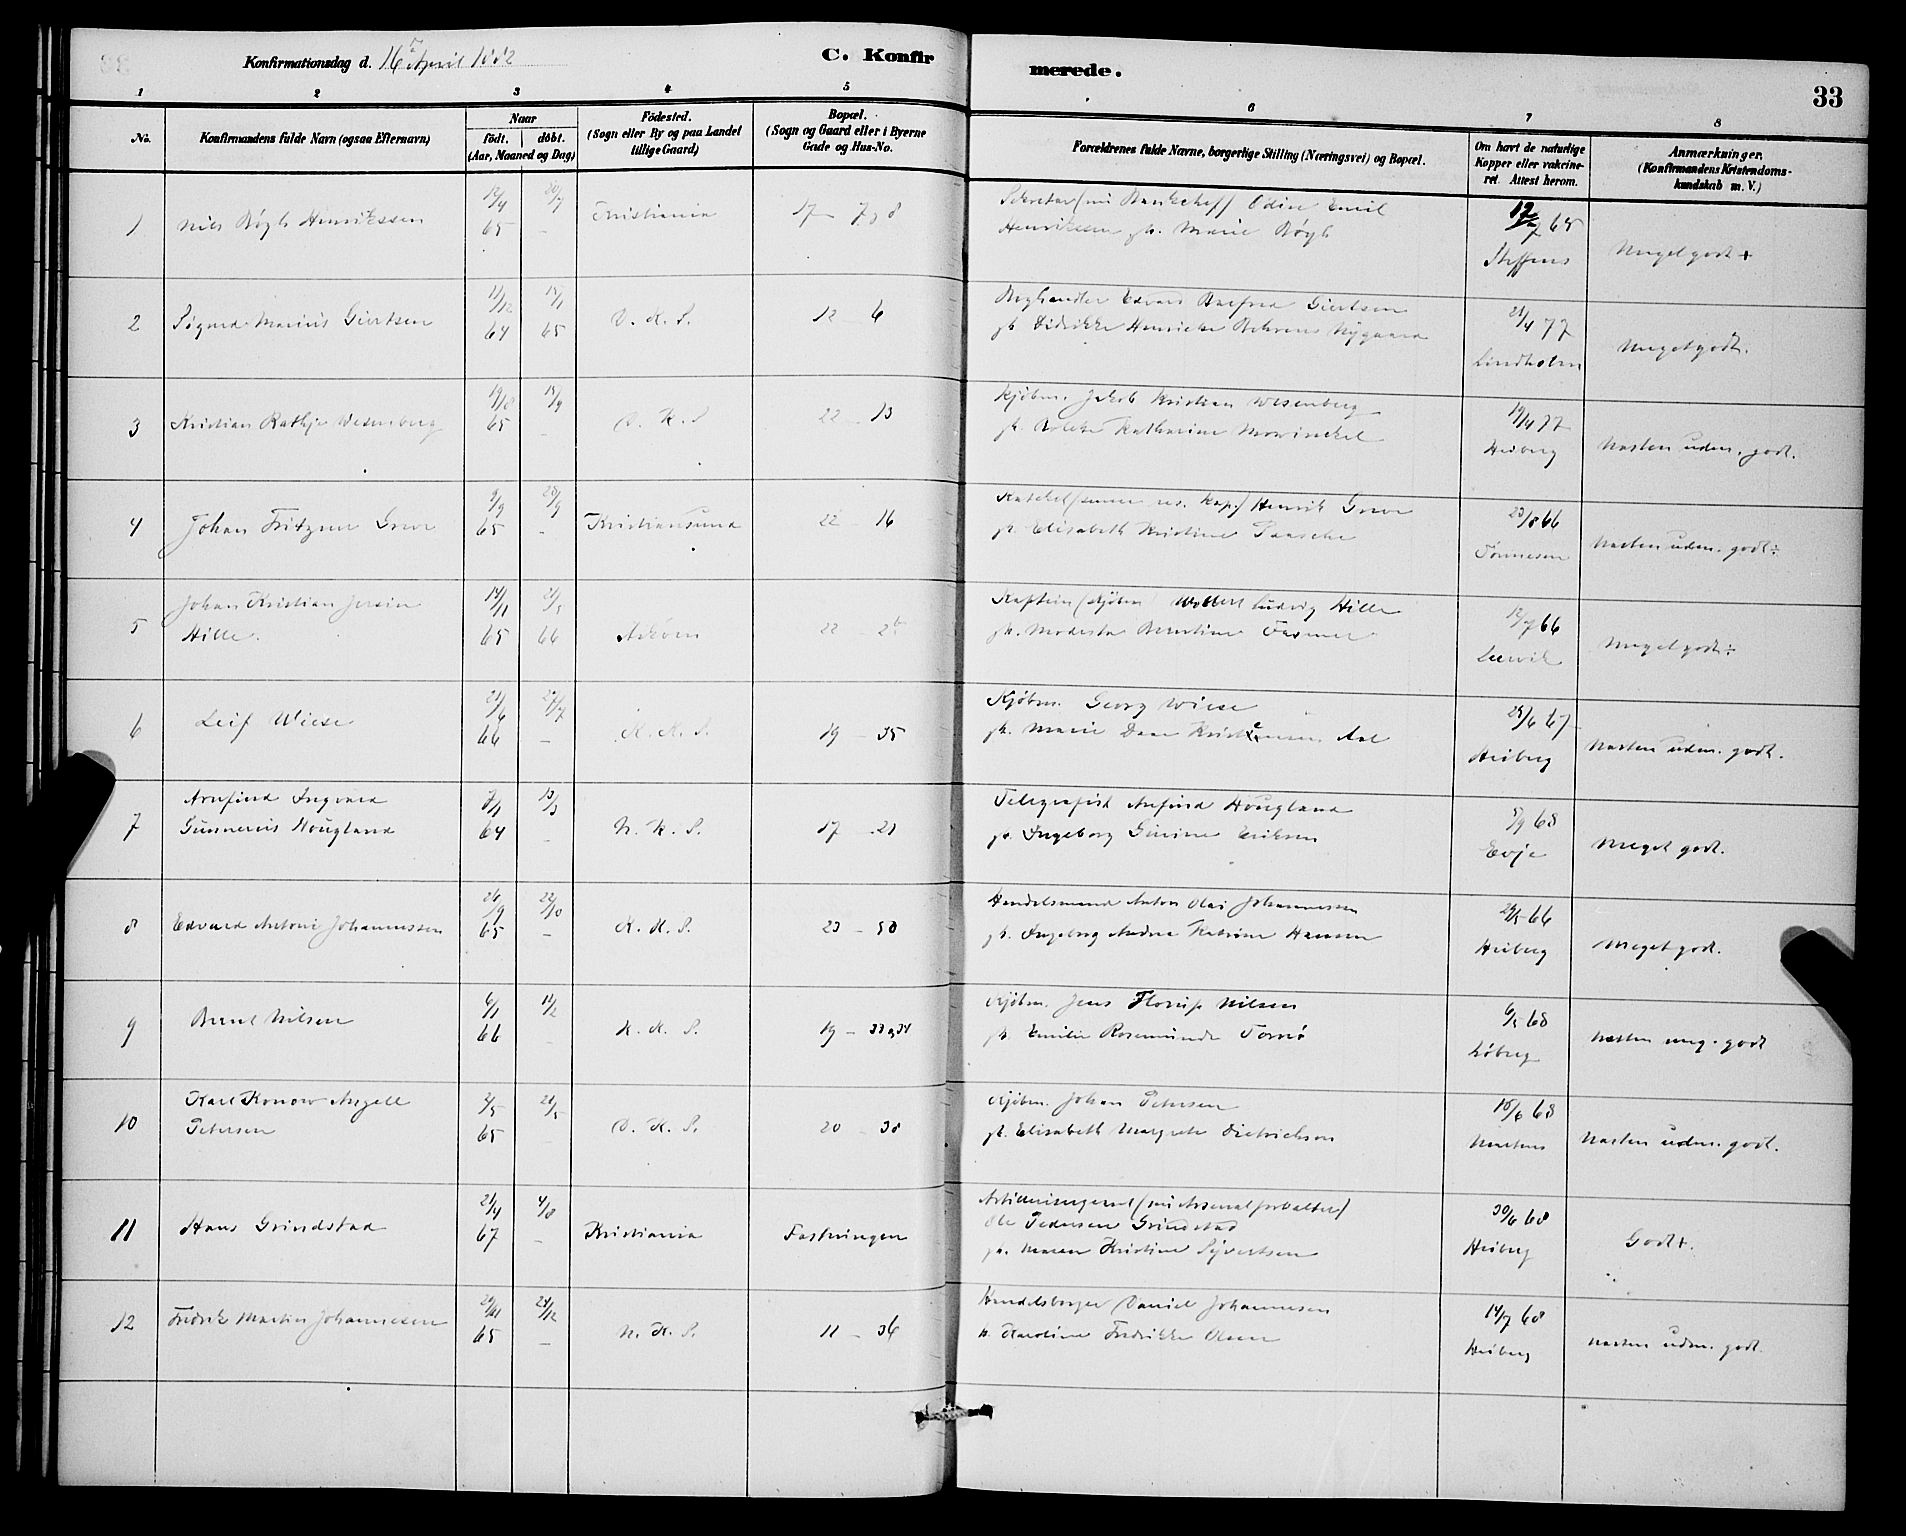 Konfirmationsdag d. 16 April 1882
C. Konfir
merede.
33
1 2 3 4 5 6 7 8
No.
Konfirmandens fulde Navn (ogsaa Efternavn)
Naar
födt. döbt.
(Aar, Maaned og Dag)
Födested.
(Sogn eller By og paa Landet
tillige Gaard)
Bopæl.
(Sogn og Gaard eller i Byerne
Gade og Hus-No.
Forældrenes fulde Navne, borgerlige Stilling (Næringsvei) og Bopæl.
Om havt de naturlige
Kopper eller vakcine-
ret. Attest herom.
Anmærkninger.
(Konfirmandens Kristendoms-
kundskab m. V.)
1 Nils Bøgh Henrikssen 12/4 65 20/7 – Kristiania 17 – 7 8
Odin Emil
Henrikssen h. Marie Bøgh
65
Steffens
Meget godt +
2 Sigurd Marius Giertsen 11/12 64 65 D. K. S. 12 – 6
Boghandler Edvard Giertsen
h. Didrikke Henricke Behrens Nygaard
21/4 77
Lindholm
Meget godt.
3 Kristian Rathje Wesenberg 19/8 65 – D. K. S 22 – 13
Kjøbm. Jakob Kristian Wesenberg
h. Katharine Mowinckel
19/4 77
Heiberg
Næsten udm. godt.
4 Johan Fritzner Greve 9/9 65 28/9 – Kristiansund 22 – 16
Henrik Greve
h. Elisabeth Kristine Paasche
23/8 66
Tønnesen
Næsten udm. godt ÷
5 Johan Kristian Jersin
Hille. 14/11 65 21/5 66 Askøen 22 – 2b
Kaptein (Kjøbm Wollert Ludvig Hille
h. Modesta Berntine Fasmer
12/7 66
Leervik
Meget godt ÷
6 Leif Wiese 21/6 66 27/7 – K. K. S. 19 – 35
Kjøbm. Georg Wiese
h. Marie Daae Aal
25/6 67
Heiberg
Næsten udm. godt.
7 Arnfind Ingvard
Gunnerius Hougland 64 13/3 – N. K. S. 17 – 21
Telegrafist Arnfind Hougland
h. Ingeborg Eriksen
5/9 68
Evje
Meget godt.
8 Edvard Antoni Johannessen 26/9 65 22/10 – K. K. S. 23 – 50
Handelsmand Anton Olai Johannessen
h. Ingeborg Andrea Katrine Hansen
66
Heiberg
Meget godt.
9 Bernt Nilsen 6/1 66 11/2 – K. K. S. 19 –
Kjøbm. Jens Florup Nilsen
h. Emilie Rosemunde Tornø
68
Løberg
næsten meg. godt
10 Karl Konow Angell
Petersen 2/5 65 21/5 – D. K. S. 20 – 30
Kjøbm. Johan Petersen
h. Elisabeth Margrete Dietrichson
15/6 68
Martens
Næsten udm. godt.
11 Hans Grindstad 21/4 67 4/8 – Kristiania Fæstningen
Artillerisergeant (nu Arsenalforvalter)
Ole Pedersen Grindstad
h. Maren Kristine Syvertsen
30/6 68
Heiberg
Godt+.
12 Fredrik Martin Johannesen 65 – N. K. S. 11 – 36
Handelsborger Daniel Johannesen
h. Karoline Fredrikke Olsen
14/7 68
Heiberg
næsten udm. godt.